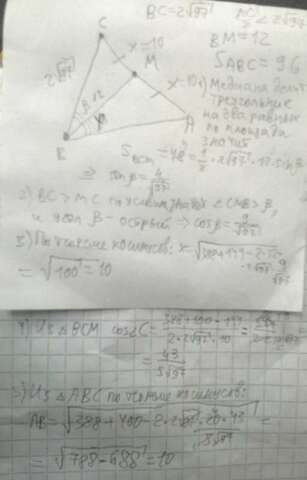 BC=2√97
AC/2 < 2√97
BM=12
S ABC = 96
C
x=10
M
2√97
12
β
A
B
1) Медиана делит
треугольник
на два равных
по площади
значит
S BCM = 48 = 1/2 · 2√97 · 12 · sinβ
⇒ sinβ = 4/√97
2) BC > MC по условию ∠CMB > β,
и угол β - острый ⇒ cosβ = 9/√97
3) По теореме косинусов: x = √388+144-2·12·2√97·9/√97
= √100 = 10
4) Из △BCM cos∠C = 388+100-144/2·2√97·10 =
= 43/5√97
5) Из △ABC по теореме косинусов:
AB = √388+400-2·2√97·20·43/5√97 =
= √788-688 = 10